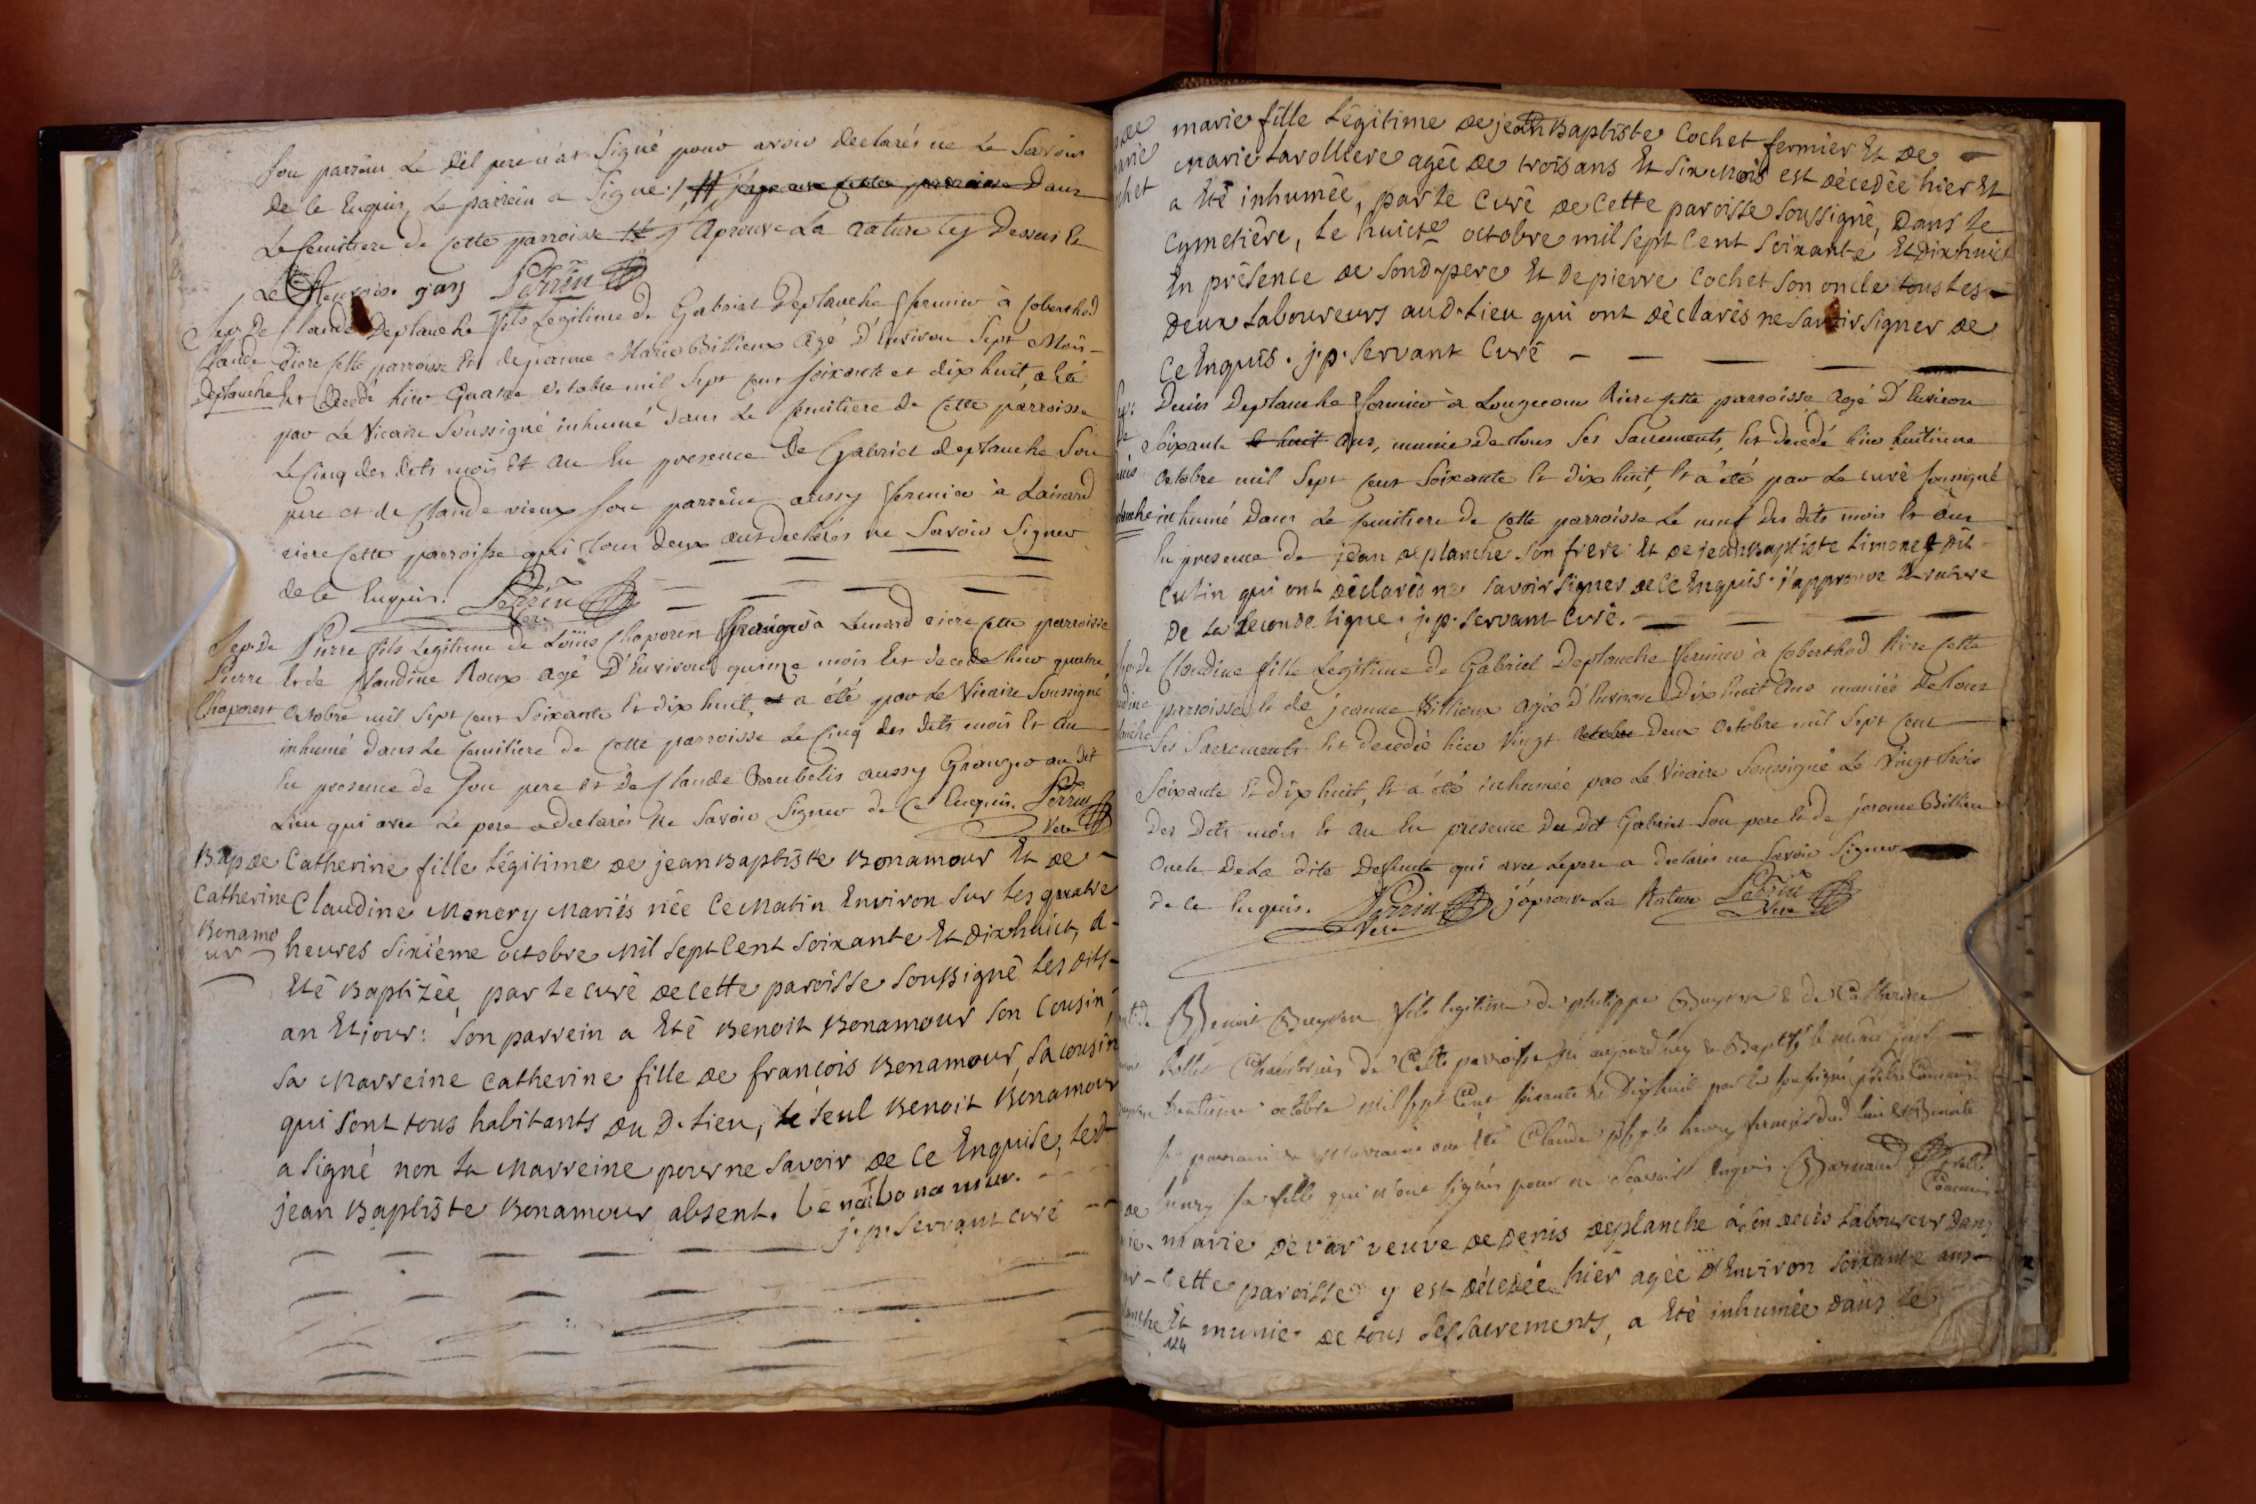 son parrein Le dit pere n'at Signé pour avoir declarés ne Le Savoir
de ce Enquis, Le parrein a Signé. / # dans
Le Cemitiere de Cette parroisse # j'aprouve La rature Cy Dessus Et
Le Perrin
Sep. De Claude Deplanche fils Legitime de Gabriel Deplanche fermier à Coberthod
Claude riere Cette parroisse Et de jeanne Marie Billioux agé D'Environ Sept Mois –
Deplanche Est Decedé hier Quatre octobre mil Sept Cent Soixante et dix huit, a été
par Le Vicaire Soussigné inhumé dans Le Cemitiere de Cette parroisse
Le Cinq des dits mois Et an En presence de Gabriel deplanche Son
pere et de Claude vieux son parrein aussy fermier à
riere Cette parroisse qui tous deux ont declarés ne Savoir Signer
de Ce Enquis. Perrin vire
Sep. De Pierre fils Legitime de Loüis Chaporen Granger à Lenard riere Cette parroisse
Pierre Et de Claudine Roux agé D'Environ quinze mois Est decedé hier quatre
Chaporen octobre mil Sept Cent Soixante Et dix huit, et a été par Le Vicaire Soussigné
inhumé dans Le Cemitiere de Cette parroisse Le Cinq des dits mois Et an
En presence de Son pere Et de Claude aussy Granger au dit
Lieu qui avec Le pere a declarés Ne Savoir Signer de Ce Enquis. Perrin vire
Bap de Catherine fille Légitime de jean Baptiste Bonamour Et de –
Catherine Claudine Monery Mariés née Ce Matin Environ sur les quatre
Bonamo heures Sixième octobre Mil Sept Cent soixante Et dix huict, a
ur Eté Baptizée, par le curé de cette paroisse soussigné les dits
an Et jour : Son parrein a Eté Benoit Bonamour son Cousin,
Sa Marreine Catherine fille de françois Bonamour, Sa cousine
qui sont tous habitants du D. Lieu, le seul Benoit Bonamour
a signé non la Marreine pour ne savoir de Ce Enquise, led.
jean Baptiste Bonamour absent. benoit bonamour.
j. p. Servant curé
marie fille Légitime de jean Baptiste Cochet fermier Et de
Marie Lavolliere agée de trois ans Et six Mois est décedée hier Et
a Eté inhumée, par le Curé de Cette paroisse soussigné, Dans le
Cymetière, le huicte octobre mil sept Cent soixante Et dix huict
En présence de son d. pere Et de pierre Cochet son oncle tous les
deux Laboureurs aud. Lieu qui ont déclarés ne savoir signer de
Ce Enquis. j. p. Servant Curé
Denis Deplanche fermier à Riere Cette parroisse agé D'Environ
Soixante Et huit ans, munie de tous Ses Sacrements, Est decedé hier huitieme
octobre mil Sept Cent Soixante Et dix huit, Et a été par Le curé Soussigné
inhumé dans Le Cemitiere de Cette parroisse Le neuf des dits mois Et an
En presence de jean deplanche son frere Et de jean Baptiste Limonet dit
Cutin qui ont déclarés ne savoir signer de Ce Enquis. j'approuve la rature
De la seconde ligne. j. p. Servant Curé.
Claudine fille Legitime de Gabriel Deplanche fermier à Coberthod Riere Cette
parroisse Et de jeanne Billioux agée d'Environ Dix huit ans munie de tous
Ses Sacrements Est decedée hier Vingt deux octobre mil Sept Cent
Soixante Et dix huit, Et a été inhumée par Le Vicaire Soussigné Le Vingt trois
Des Dits mois Et an En presence du dit Gabriel Son pere Et de jerome Billiou
Oncle De La dite Deffunte qui avec Le pere a declarés ne Savoir Signer
de Ce Enquis. Perrin vire j'aprouve La Rature Perrin vire
Benoit fils legitime de philippe & de Catherine
Rollet de Cette parroisse né aujourd'huy & Baptisé le même jour
trentieme octobre mil sept Cent soixante & Dixhuit par le soussigné prêtre Commis
Le parrain & Marraine ont été Claude joseph henry fermier dud. lieu & Benoite
henry sa fille qui n'ont signés pour ne sçavoir Enquis. Barnaud prêtre Commis
marie veuve de Denis deplanche à son décès Laboureur Dans
Cette paroisse y est décedée hier agée d'Environ soixante ans
Et munie de tous ses sacrements, a Eté inhumée dans le
124